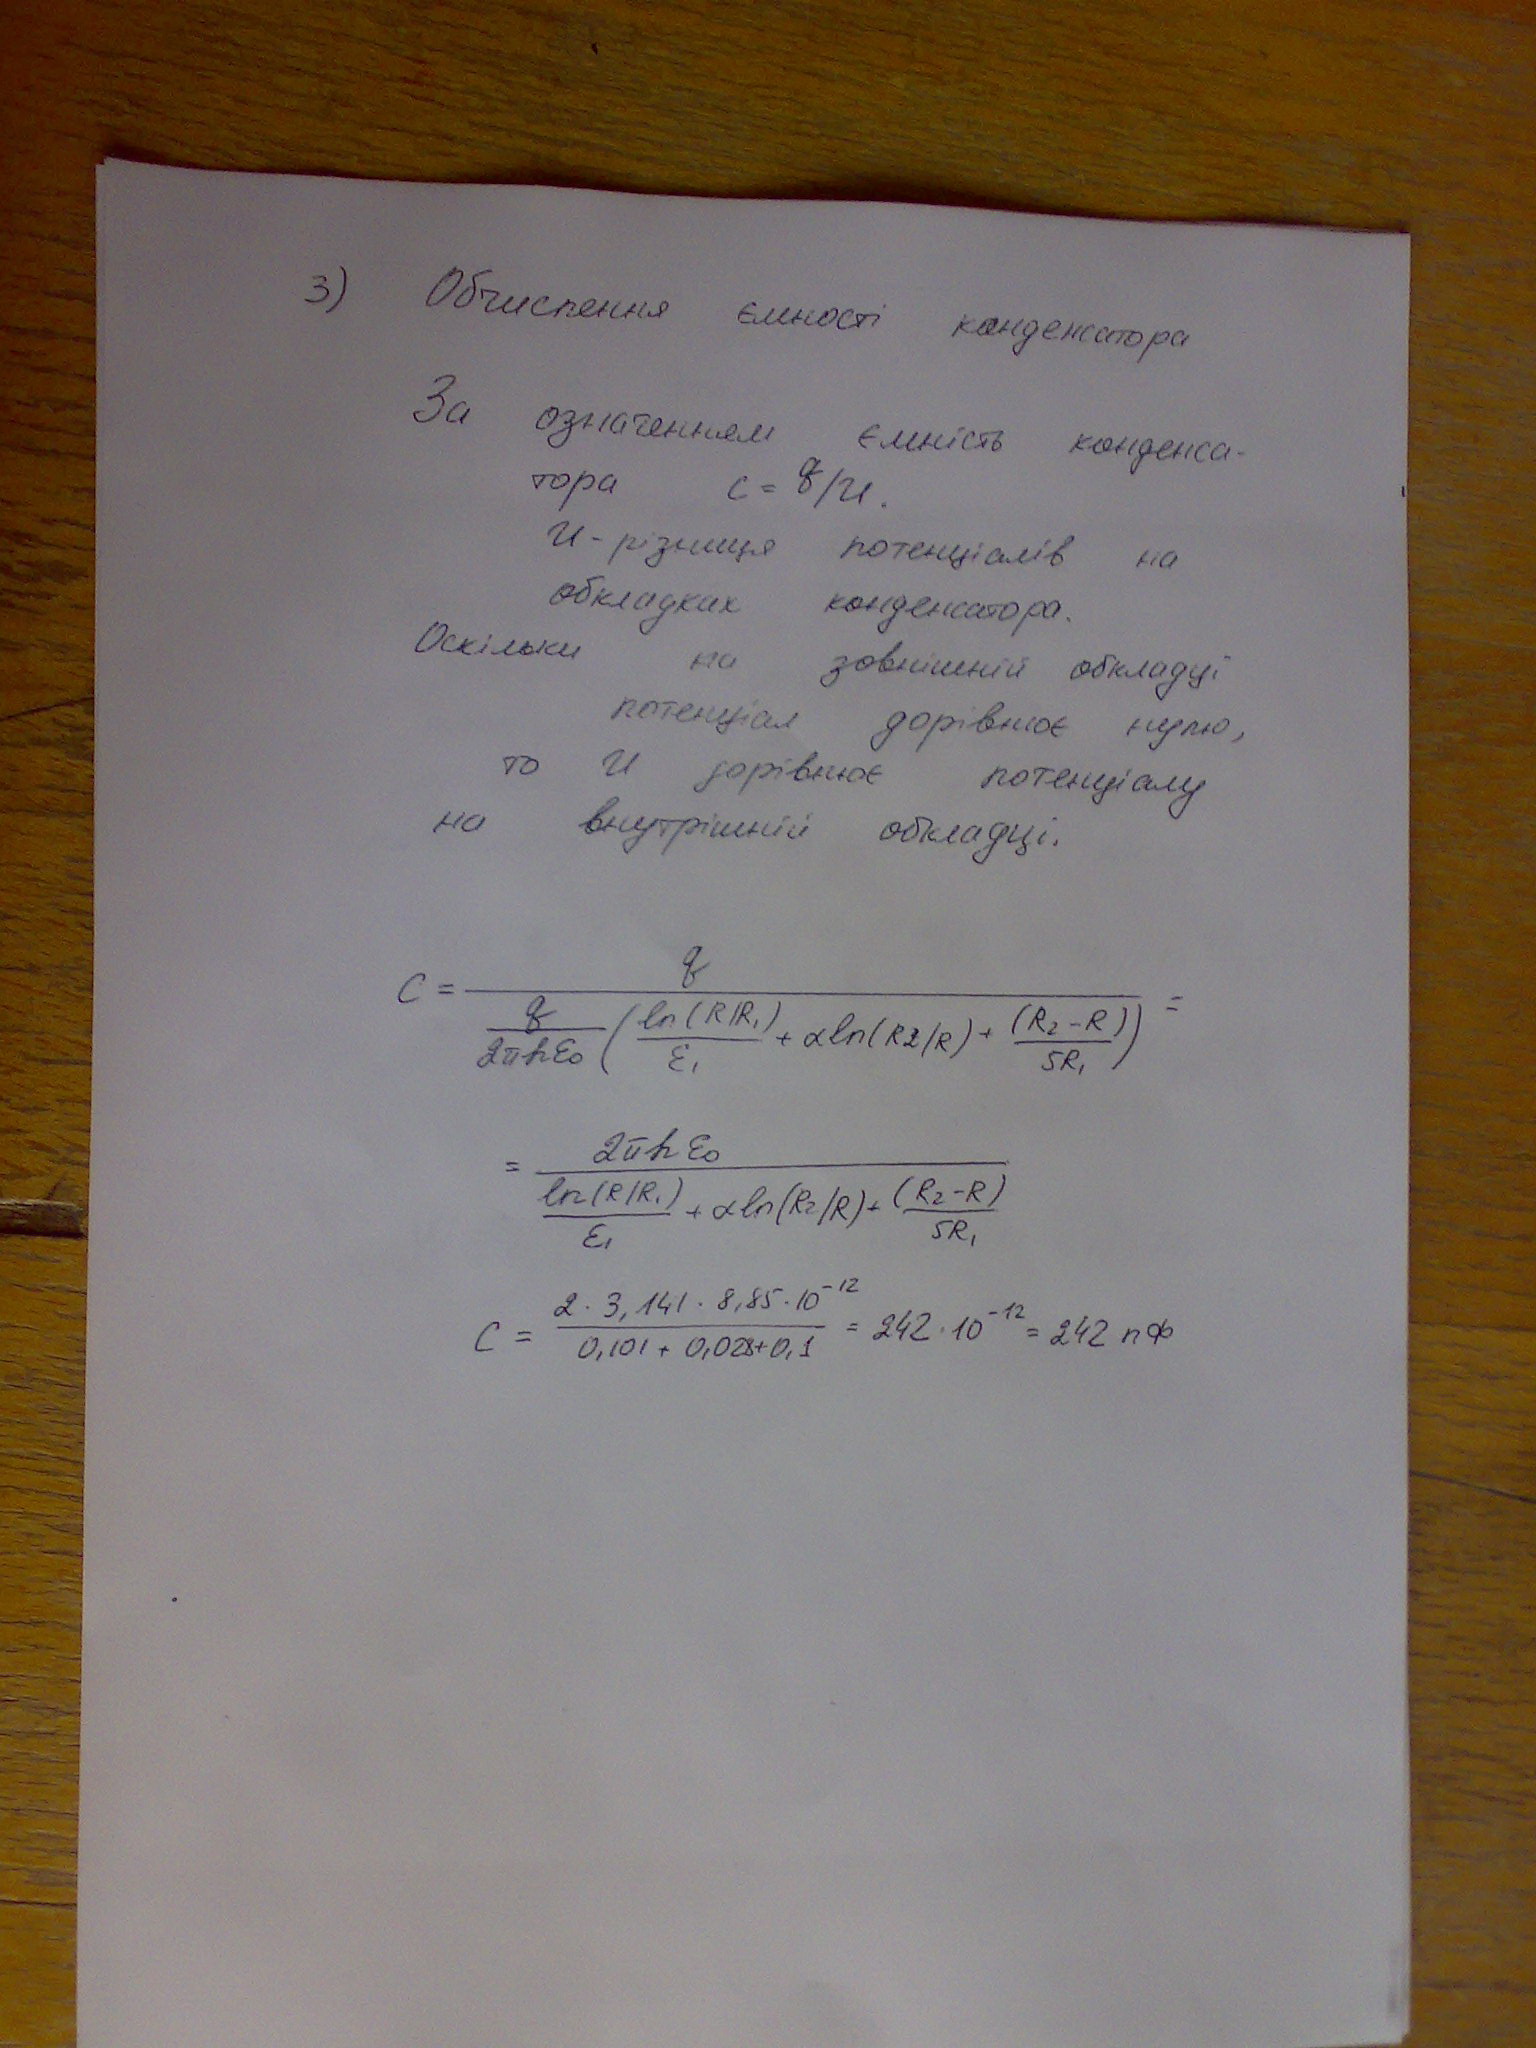 3) Обчислення ємності конденсатора
За означенням ємність конденса-
тора C = q/U.
U - різниця потенціалів на
обкладках конденсатора.
Оскільки на зовнішній обкладці
потенціал дорівнює нулю,
то U дорівнює потенціалу
на внутрішній обкладці.
C = q / (q/(2πhε₀) (ln(R/R₁)/ε₁ + αln(R2/R) + (R₂-R)/5R₁)) =
= 2πhε₀ / (ln(R/R₁)/ε₁ + αln(R₂/R) + (R₂-R)/5R₁)
C = 2·3,141·8,85·10⁻¹² / (0,101 + 0,028+0,1) = 242·10⁻¹² = 242 пФ